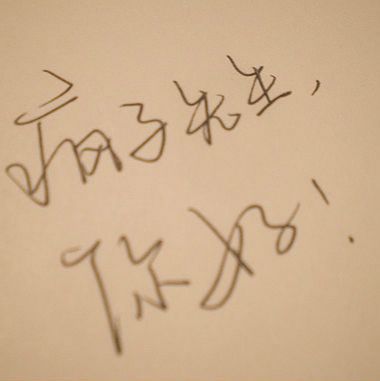 疯子先生,
你好!